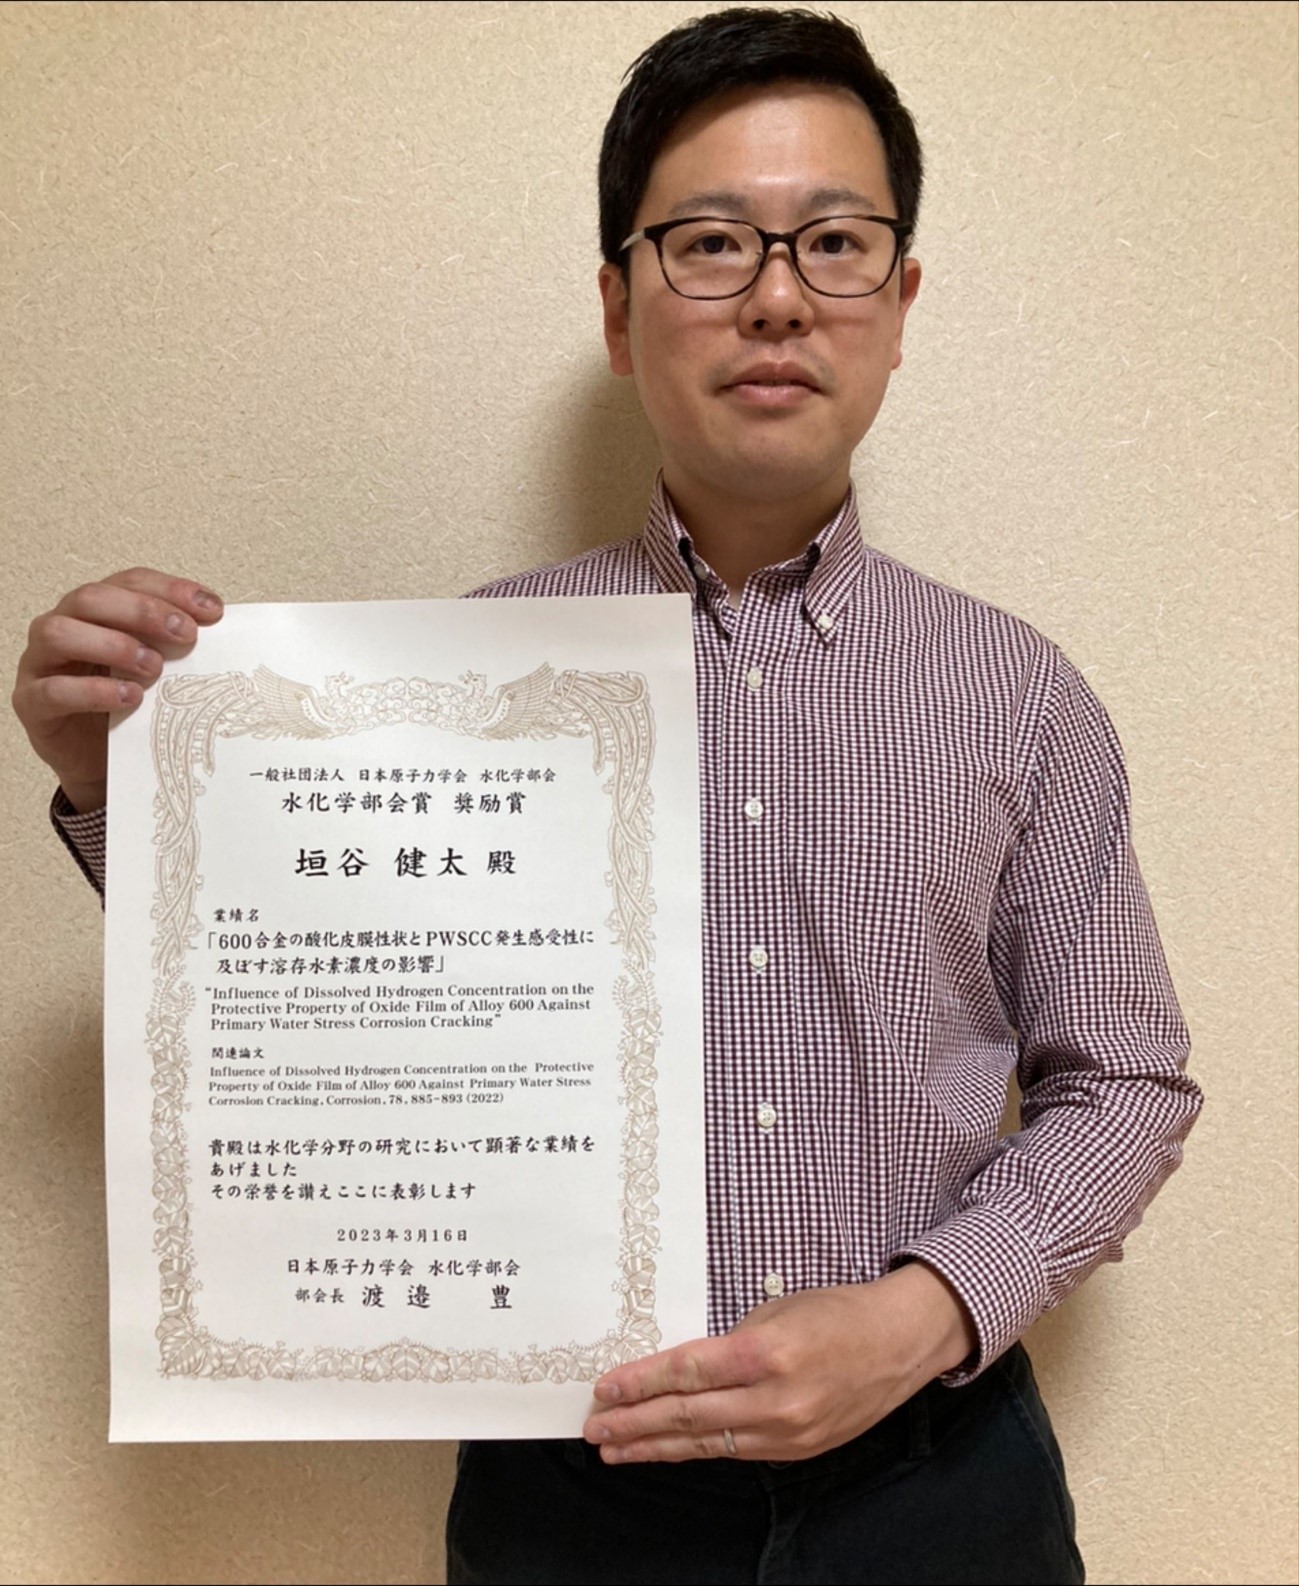 一般社団法人 日本原子力学会 水化学部会
水化学部会賞 奨励賞
垣谷 健太 殿
業績名
「600合金の酸化皮膜性状とPWSCC発生感受性に
及ぼす溶存水素濃度の影響」
"Influence of Dissolved Hydrogen Concentration on the
Protective Property of Oxide Film of Alloy 600 Against
Primary Water Stress Corrosion Cracking"
関連論文
Influence of Dissolved Hydrogen Concentration on the Protective
Property of Oxide Film of Alloy 600 Against Primary Water Stress
Corrosion Cracking, Corrosion, 78, 885-893 (2022)
貴殿は水化学分野の研究において顕著な業績を
あげました
その栄誉を讃えここに表彰します
2023年3月16日
日本原子力学会 水化学部会
部会長 渡邉 豊